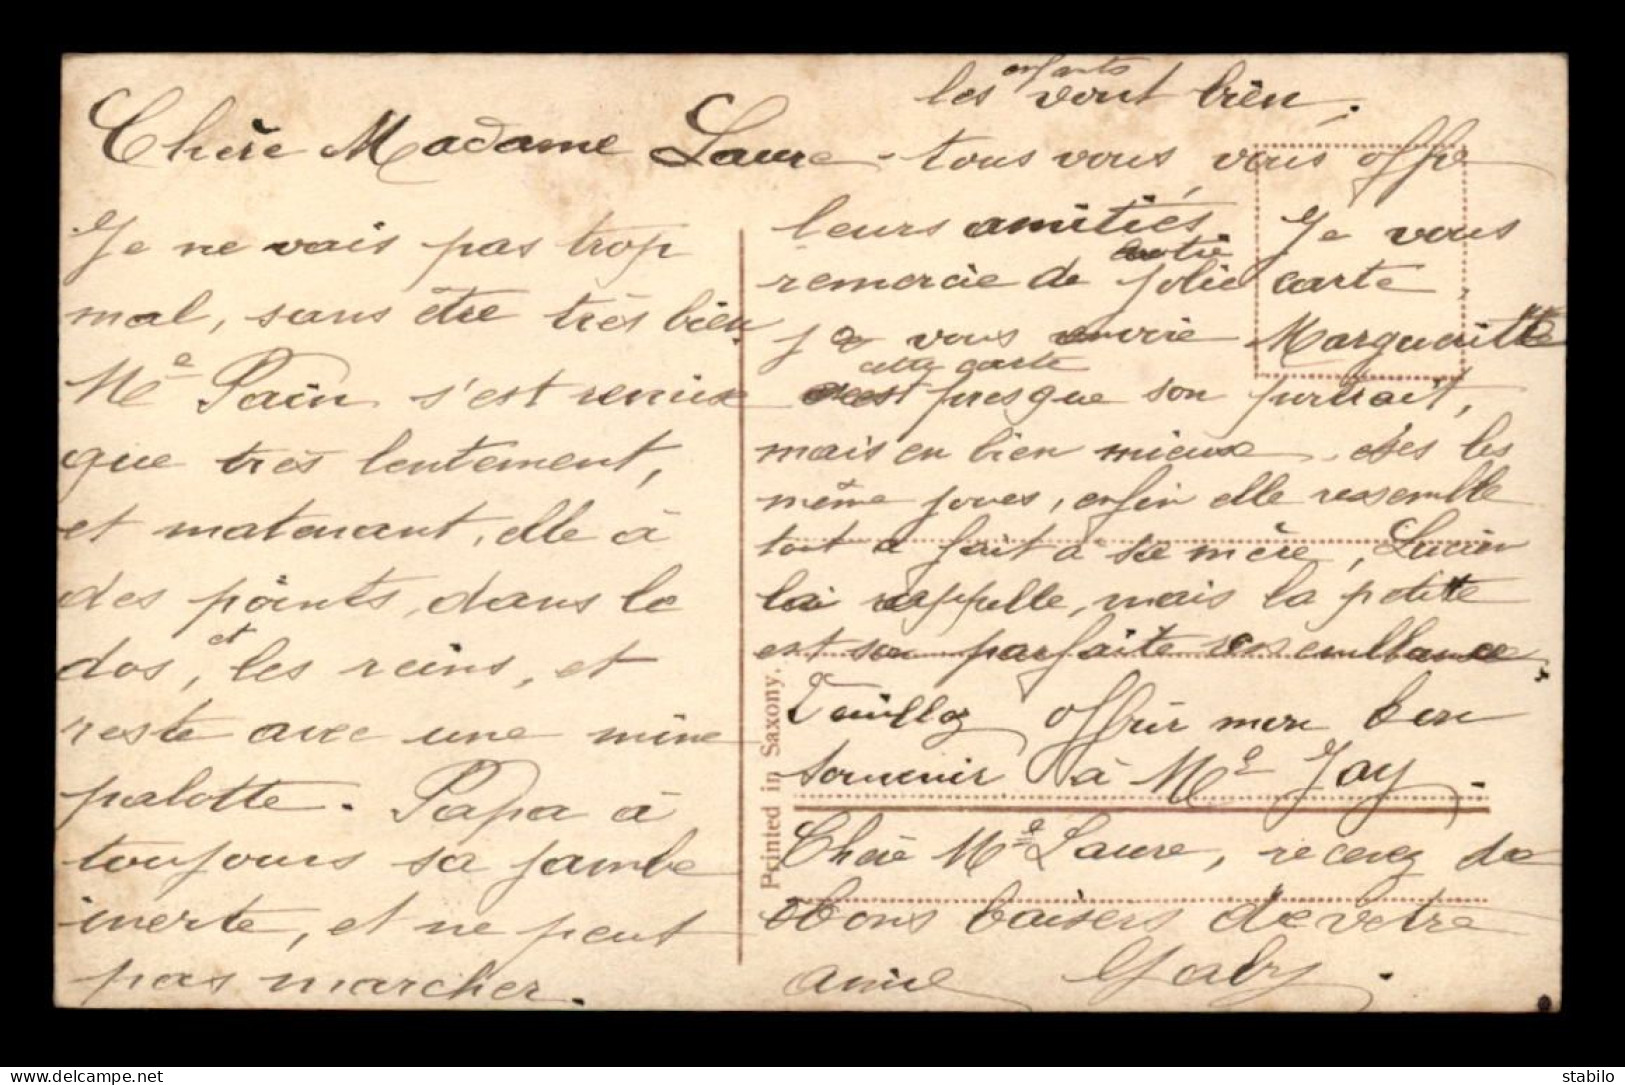 Chère Madame Laure -
Je ne vais pas trop
mal, sans être très bien.
Me Pain s'est remise
que très lentement,
et matenant, elle à
des points, dans le
dos, et les reins, et
reste avec une mine
palotte. Papa à
toujours sa jambe
inerte, et ne peut
pas marcher.
les enfants vont bien,
tous vous vous offre
leurs amitiés. Je vous
remercie de votre jolie carte,
je vous envoie Marguerite
cette carte est presque son portrait,
mais en bien mieux, ses les
même joues, enfin elle ressemble
tout a fait à sa mère, Lucien
lai rappelle, mais la petite
est son parfaite ressemblance.
Veuillez offrir mon bon
souvenir à Me Jay.
Chère Me Laure, recevez de
bons baisers de votre
amie Gaby.
Printed in Saxony.
stabilo